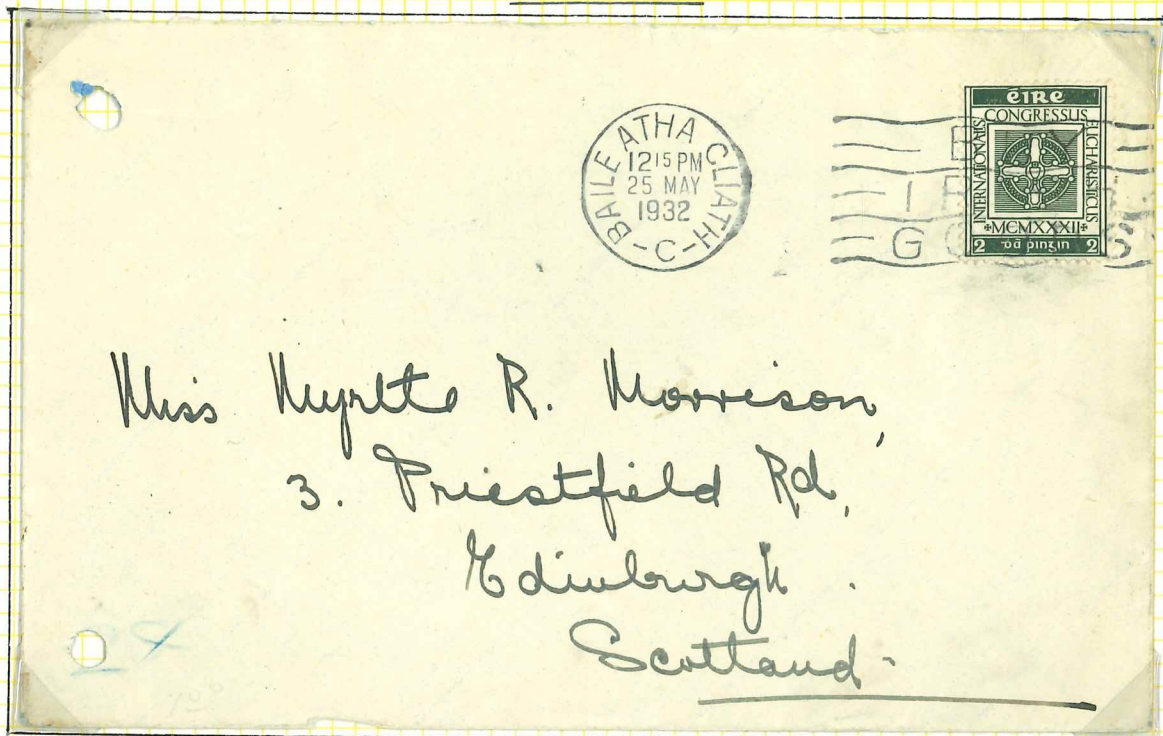 BAILE ATHA CLIATH
12 15 PM
25 MAY
1932
-C-
éIRe
CONGRESSUS
INTERNATIONALIS
EUCHARISTICUS
MCMXXXII
2 ꝺá pinᵹin 2
Miss Myrltte R. Morrison,
3. Priestfield Rd,
Edinburgh.
Scotland